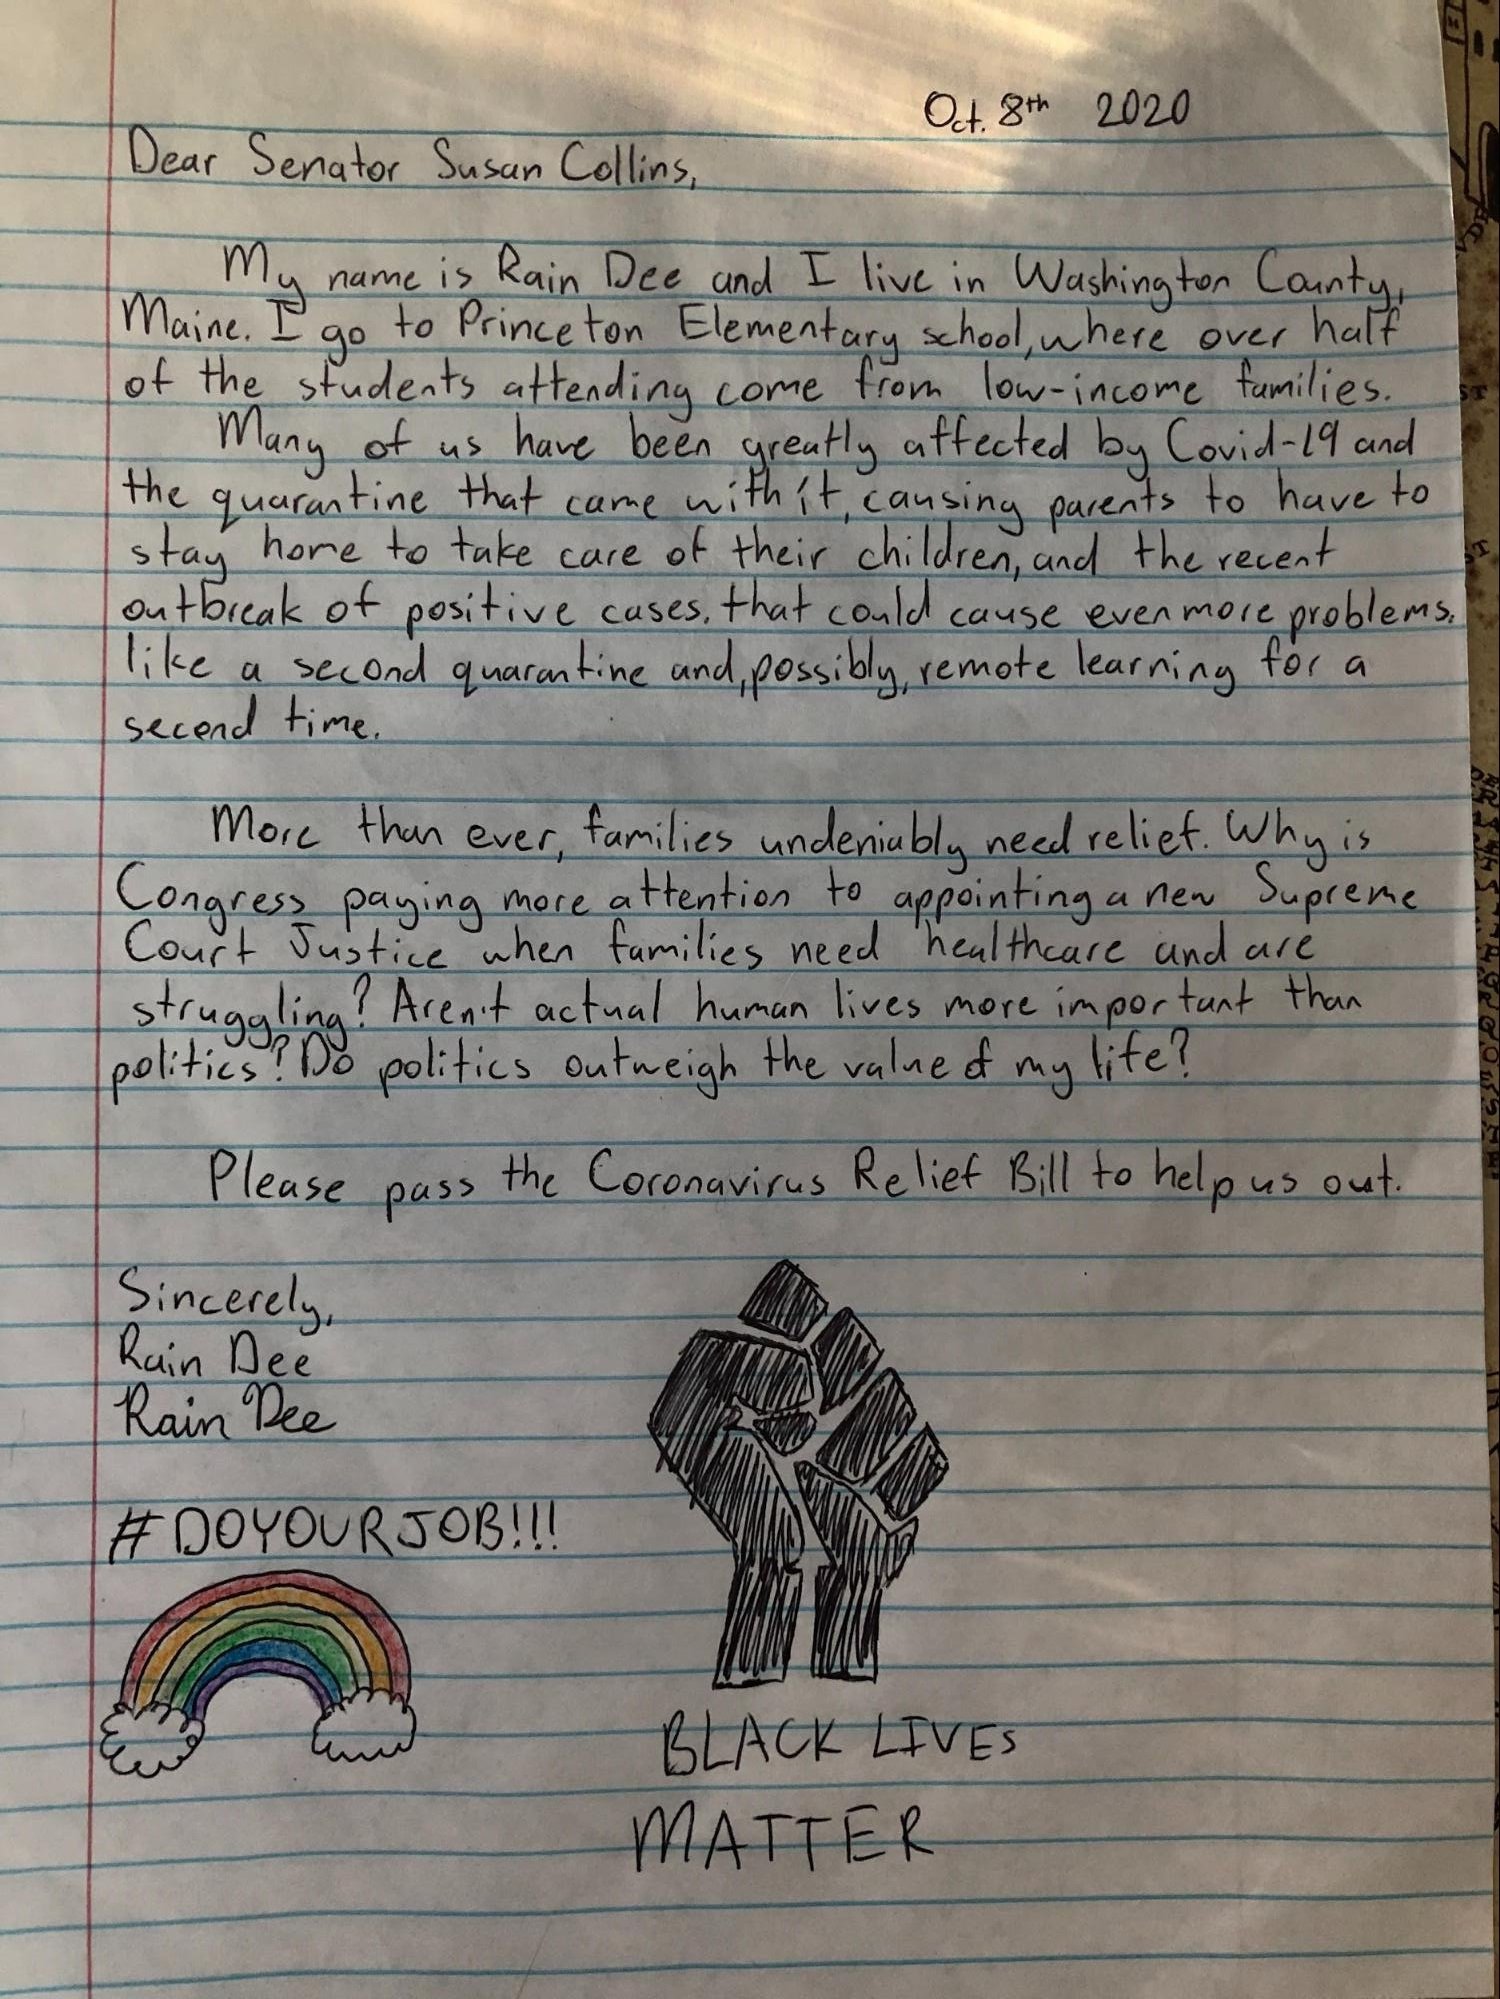 Oct. 8th 2020
Dear Senator Susan Collins,
My name is Rain Dee and I live in Washington County,
Maine. I go to Princeton Elementary school, where over half
of the students attending come from low-income families.
Many of us have been greatly affected by Covid-19 and
the quarantine that came with it, causing parents to have to
stay home to take care of their children, and the recent
outbreak of positive cases. that could cause even more problems.
like a second quarantine and, possibly, remote learning for a
second time.
More than ever, families undeniably need relief. Why is
Congress paying more attention to appointing a new Supreme
Court Justice when families need healthcare and are
struggling? Aren't actual human lives more important than
politics? Do politics outweigh the value of my life?
Please pass the Coronavirus Relief Bill to help us out.
Sincerely,
Rain Dee
Rain Dee
#DOYOURJOB!!!
BLACK LIVES
MATTER